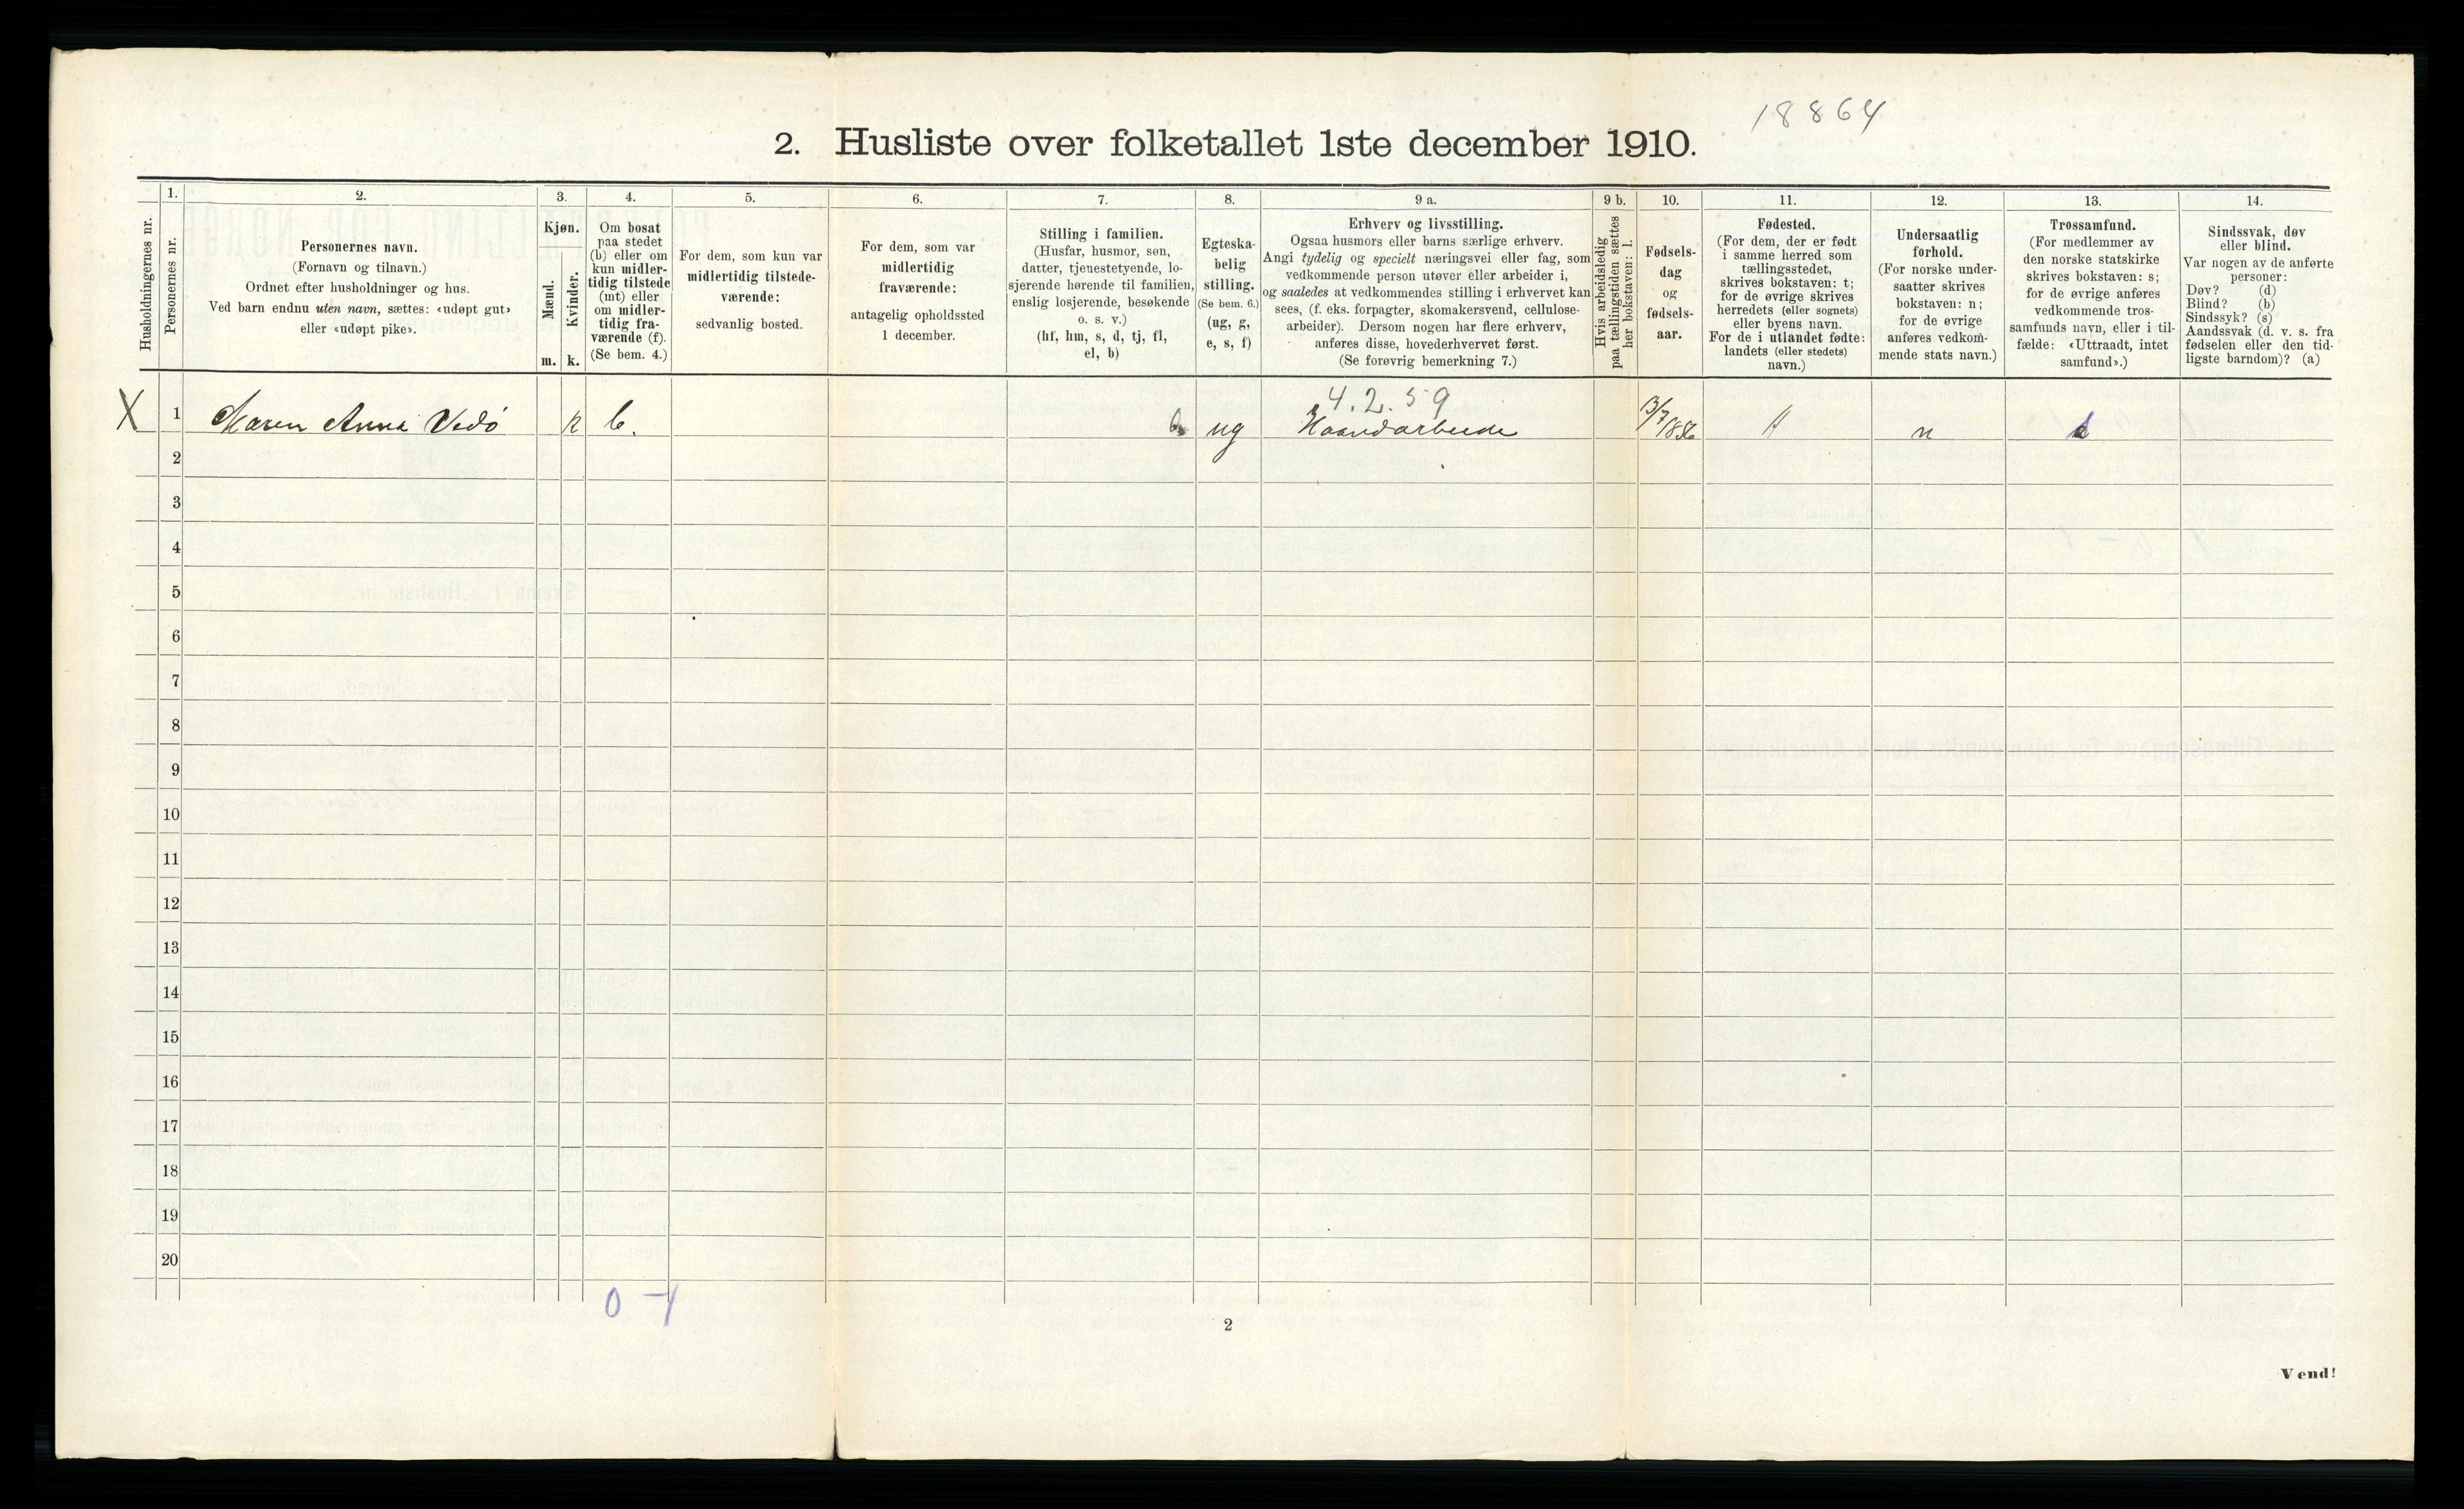 18864
2. Husliste over folketallet 1ste december 1910.
Husholdningernes nr.
1.
Personernes nr.
2.
Personernes navn.
(Fornavn og tilnavn.)
Ordnet efter husholdninger og hus.
Ved barn endnu uten navn, sættes: «udøpt gut»
eller «udøpt pike».
3.
Kjøn.
Mænd.
Kvinder.
m. k.
4.
Om bosat
paa stedet
(b) eller om
kun midler-
tidig tilstede
(mt) eller
om midler-
tidig fra-
værende (f).
(Se bem. 4.)
5.
For dem, som kun var
midlertidig tilstede-
værende:
sedvanlig bosted.
6.
For dem, som var
midlertidig
fraværende:
antagelig opholdssted
1 december.
7.
Stilling i familien.
(Husfar, husmor, søn,
datter, tjenestetyende, lo-
sjerende hørende til familien,
enslig losjerende, besøkende
o. s. v.)
(hf, hm, s, d, tj, fl,
el, b)
8.
Egteska-
belig
stilling.
(Se bem. 6.)
(ug, g,
e, s, f)
9 a.
Erhverv og livsstilling.
Ogsaa husmors eller barns særlige erhverv.
Angi tydelig og specielt næringsvei eller fag, som
vedkommende person utøver eller arbeider i,
og saaledes at vedkommendes stilling i erhvervet kan
sees, (f. eks. forpagter, skomakersvend, cellulose-
arbeider). Dersom nogen har flere erhverv,
anføres disse, hovederhvervet først.
(Se forøvrig bemerkning 7.)
9 b.
Hvis arbeidsledig
paa tællingstiden sættes
her bokstaven: l.
10.
Fødsels-
dag
og
fødsels-
aar.
11.
Fødested.
(For dem, der er født
i samme herred som
tællingsstedet,
skrives bokstaven: t;
for de øvrige skrives
herredets (eller sognets)
eller byens navn.
For de i utlandet fødte:
landets (eller stedets)
navn.)
12.
Undersaatlig
forhold.
(For norske under-
saatter skrives
bokstaven: n;
for de øvrige
anføres vedkom-
mende stats navn.)
13.
Trossamfund.
(For medlemmer av
den norske statskirke
skrives bokstaven: s;
for de øvrige anføres
vedkommende tros-
samfunds navn, eller i til-
fælde: «Uttraadt, intet
samfund».)
14.
Sindssvak, døv
eller blind.
Var nogen av de anførte
personer:
Døv? (d)
Blind? (b)
Sindssyk? (s)
Aandssvak (d. v. s. fra
fødselen eller den tid-
ligste barndom)? (a)
4.2.59
X 1 Maren Anna Vedø k b. ug Haandarbeide 13/7 1856 t n s
2
3
4
5
6
7
8
9
10
11
12
13
14
15
16
17
18
19
20
0 – 1
2
Vend!